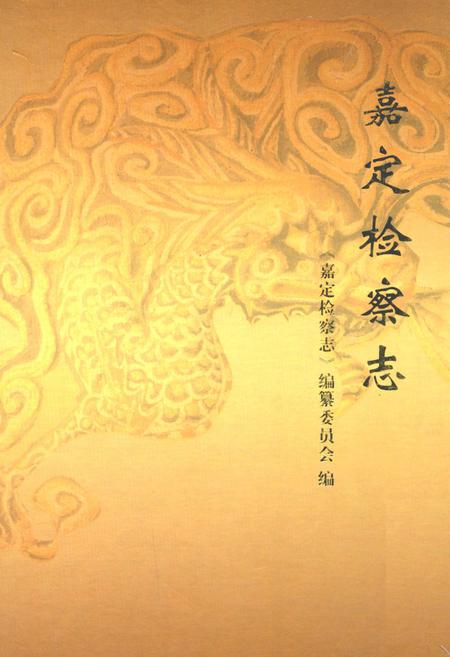 嘉定检察志
《嘉定检察志》编纂委员会 编